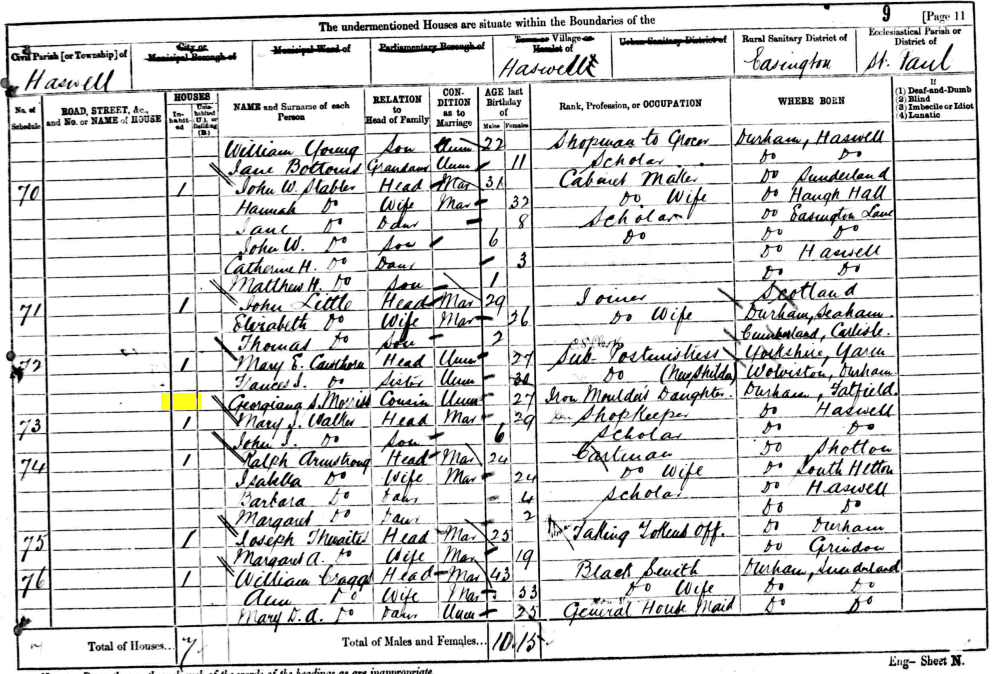 The undermentioned Houses are situate within the Boundaries of the 9 [Page 11
Civil Parish [or Township] of City or Municipal Borough of Municipal Ward of Parliamentary Borough of Town or Village or Hamlet of Urban Sanitary District of Rural Sanitary District of Ecclesiastical Parish or District of
Haswell Haswell Easington St. Paul
No. of Schedule ROAD, STREET, &c., and No. or NAME of HOUSE HOUSES Inhabited Uninhabited (U.), or Building (B.) NAME and Surname of each Person RELATION to Head of Family CONDITION as to Marriage AGE last Birthday of Males Females Rank, Profession, or OCCUPATION WHERE BORN If (1) Deaf-and-Dumb (2) Blind (3) Imbecile or Idiot (4) Lunatic
William Young Son Unm 22 Shopman to Grocer Durham, Haswell
Jane Bottoms Grandaur Unm 11 Scholar Do Do
70 1 John W. Stabler Head Mar 31 Cabinet Maker Do Sunderland
Hannah Do Wife Mar 32 Do Wife Do Haugh Hall
Jane Do Daur 8 Scholar Do Easington Lane
John W. Do Son 6 Do Do Do
Catherine H. Do Daur 3 Do Haswell
Matthew H. Do Son 1 Do Do
71 1 John Little Head Mar 29 Joiner Scotland
Elizabeth Do Wife Mar 26 Do Wife Durham, Seaham
Thomas Do Son 2 Cumberland, Carlisle.
72 1 Mary E. Cawthorn Head Unm 27 Sub Postmistress Yorkshire, Yarm
Frances J. Do Sister Unm Do Wolviston, Durham
Georgiana S. Morriss Cousin Unm 27 Iron Moulder's Daughter. Durham, Fatfield.
73 1 Mary J. Walker Head Mar 29 Shopkeeper Do Haswell
John J. Do Son 6 Scholar Do Do
74 1 Ralph Armstrong Head Mar 24 Cartman Do Shotton
Isabella Do Wife Mar 24 Do Wife Do South Hetton
Barbara Do Daur 4 Scholar Do Haswell
Margaret Do Daur 2 Do Do
75 1 Joseph Thwaites Head Mar 25 Taking Tokens Off. Do Durham
Margaret A. Do Wife Mar 19 Do Grindon
76 1 William Craggs Head Mar 43 Black Smith Durham, Sunderland
Ann Do Wife Mar 53 Do Wife Do Do
Mary D. A. Do Daur Unm 25 General House Maid Do Do
Total of Houses... 7 Total of Males and Females... 10 15
Eng— Sheet N.